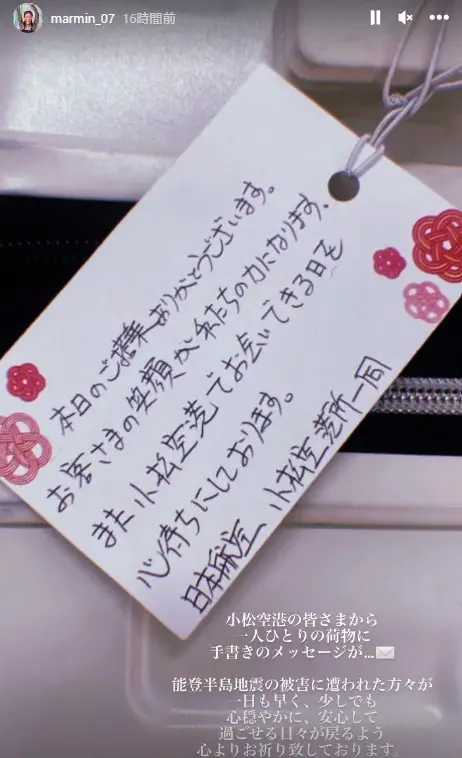 marmin_07 16時間前
本日のご搭乗ありがとうございます。
お客さまの笑顔が私たちの力になります。
また小松空港でお会いできる日を
心待ちにしております。
日本航空 小松空港所一同
小松空港の皆さまから
一人ひとりの荷物に
手書きのメッセージが...✉️
能登半島地震の被害に遭われた方々が
一日も早く、少しでも
心穏やかに、安心して
過ごせる日々が戻るよう
心よりお祈り致しております。